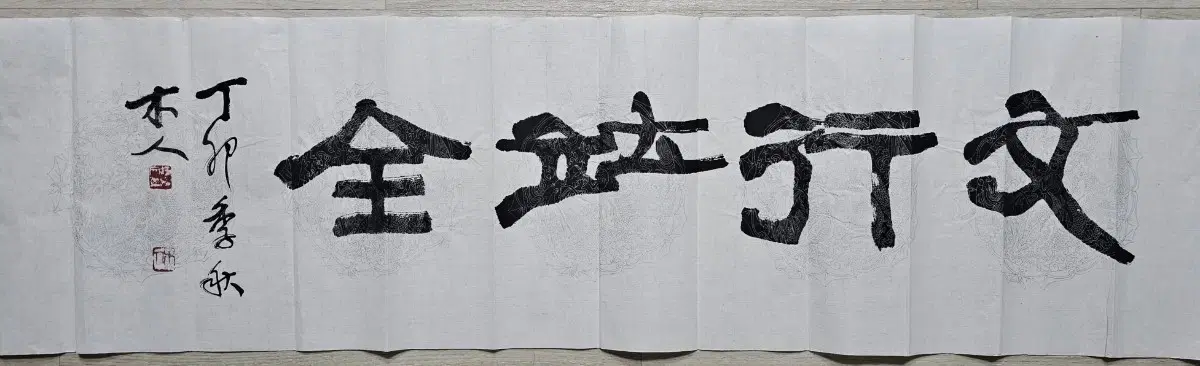 文行竝全
丁卯季秋
木人